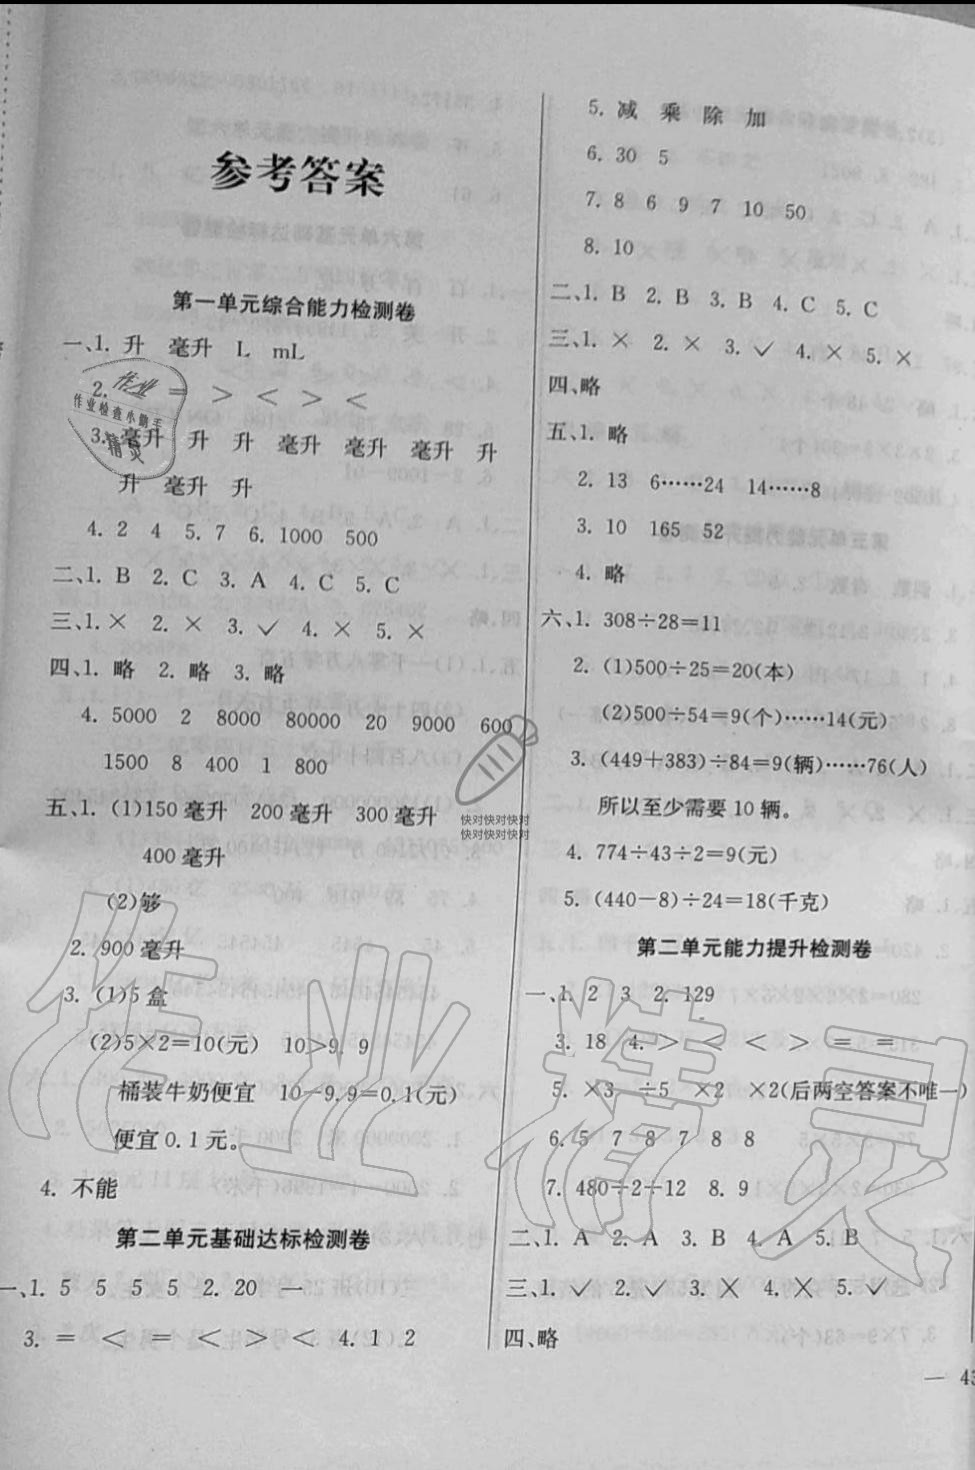 参考答案
第一单元综合能力检测卷
一、1. 升 毫升 L mL
2. = > < > <
3. 毫升 升 升 毫升 毫升 毫升 升
升 毫升 升
4. 2 4 5. 7 6. 1000 500
二、1. B 2. C 3. A 4. C 5. C
三、1. × 2. × 3. ✓ 4. × 5. ×
四、1. 略 2. 略 3. 略
4. 5000 2 8000 80000 20 9000 600
1500 8 400 1 800
五、1. (1)150 毫升 200 毫升 300 毫升
400 毫升
(2)够
2. 900 毫升
3. (1)5 盒
(2)5×2=10(元) 10>9.9
桶装牛奶便宜 10-9.9=0.1(元)
便宜 0.1 元。
4. 不能
第二单元基础达标检测卷
一、1. 5 5 5 5 2. 20 一
3. = < = < > < 4. 1 2
5. 减 乘 除 加
6. 30 5
7. 8 6 9 7 10 50
8. 10
二、1. B 2. B 3. B 4. C 5. C
三、1. × 2. × 3. ✓ 4. × 5. ×
四、略
五、1. 略
2. 13 6……24 14……8
3. 10 165 52
4. 略
六、1. 308÷28=11
2. (1)500÷25=20(本)
(2)500÷54=9(个)……14(元)
3. (449+383)÷84=9(辆)……76(人)
所以至少需要 10 辆。
4. 774÷43÷2=9(元)
5. (440-8)÷24=18(千克)
第二单元能力提升检测卷
一、1. 2 3 2. 129
3. 18 4. > < < > = =
5. ×3 ÷5 ×2 ×2(后两空答案不唯一)
6. 5 7 8 7 8 8
7. 480÷2÷12 8. 9
二、1. A 2. A 3. B 4. A 5. B
三、1. ✓ 2. ✓ 3. × 4. × 5. ✓
四、略
— 43
作业
作业检查小助手
精灵
快对快对快对
快对快对快对
作业精灵